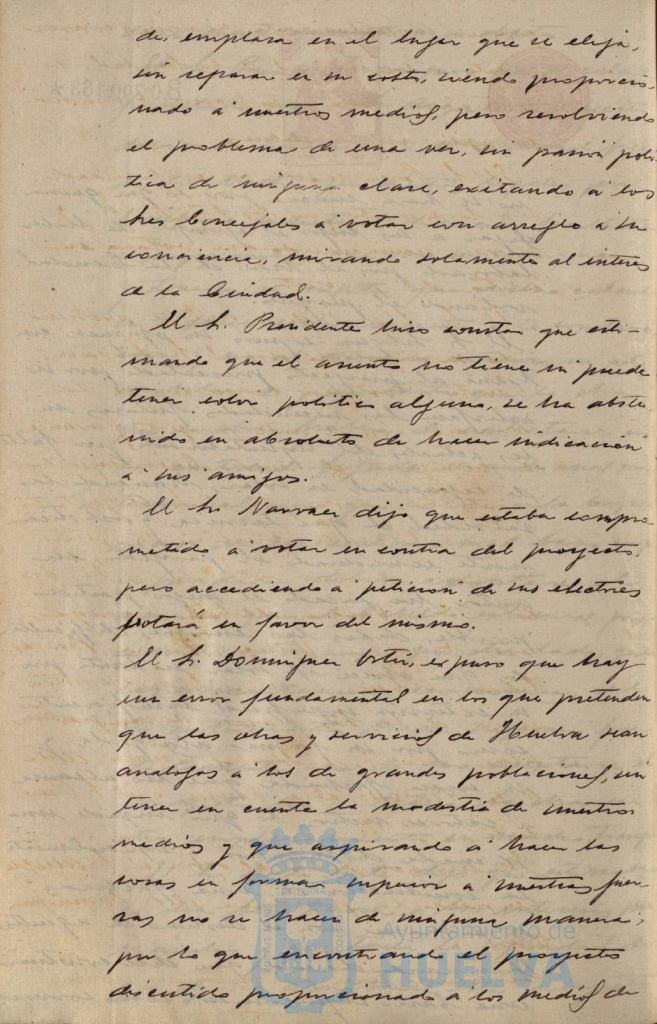 de, emplaza en el lugar que se elija,
sin reparar en su coste, siendo proporcio-
nado á nuestros medios, pero resolviendo
el problema de una vez, sin pasión polí
tica de ninguna clase, exitando á los
Sres Concejales á votar con arreglo a su
conciencia, mirando solamente al interes
de la Ciudad.
El Sr. Presidente hizo constar que esti-
mando que el asunto no tiene ni puede
tener color politico alguno, se ha abste
nido en absoluto de hacer indicación
á sus amigos.
El Sr Narvaez dijo que estaba compro-
metido á votar en contra del proyecto,
pero accediendo á petición de sus electores
votará en favor del mismo.
El Sr. Dominguez Ortiz, expuso que hay
un error fundamental en los que pretenden
que las obras y servicios de Huelva sean
analogos á los de grandes poblaciones, sin
tener en cuenta la modestia de nuestros
medios y que aspirando á hacer las
cosas en forma superior á nuestras fuer
zas no se hacen de ninguna manera;
por lo que encontrando el proyecto
discutido proporcionado a los medios de
Ayuntamiento de
HUELVA